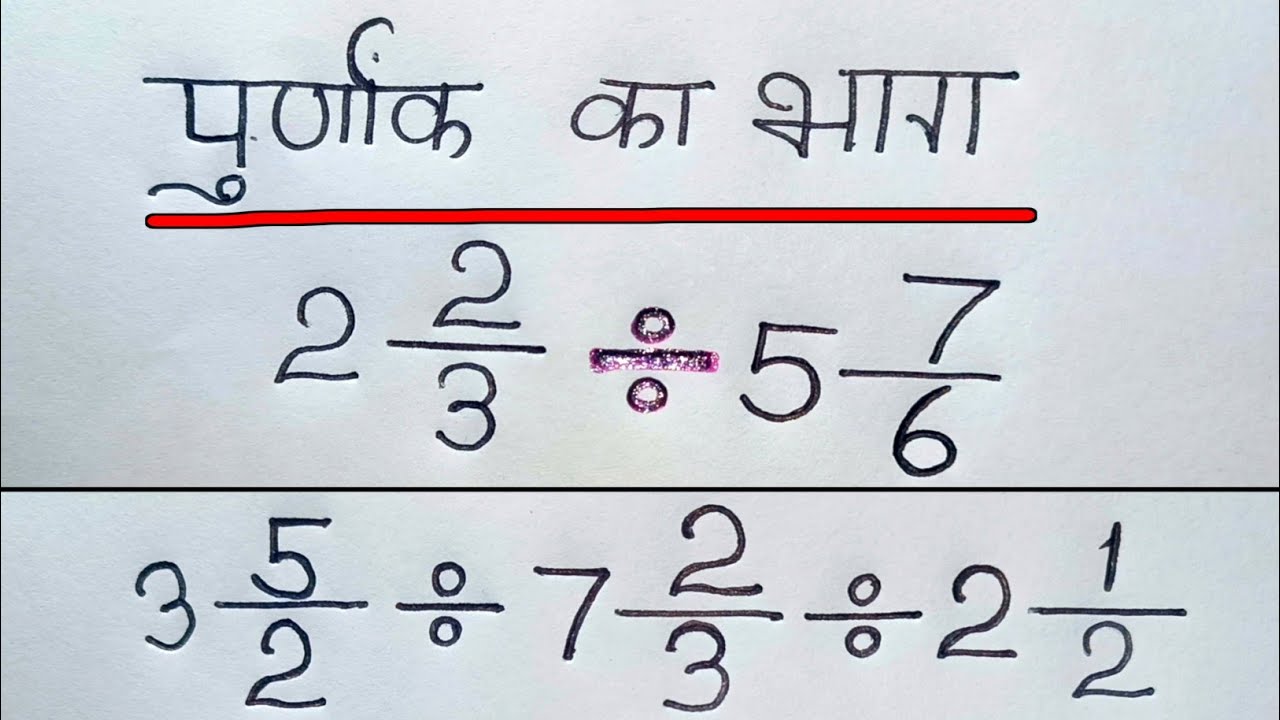 पुर्णांक का भाग
2 2/3 ÷ 5 7/6
3 5/2 ÷ 7 2/3 ÷ 2 1/2